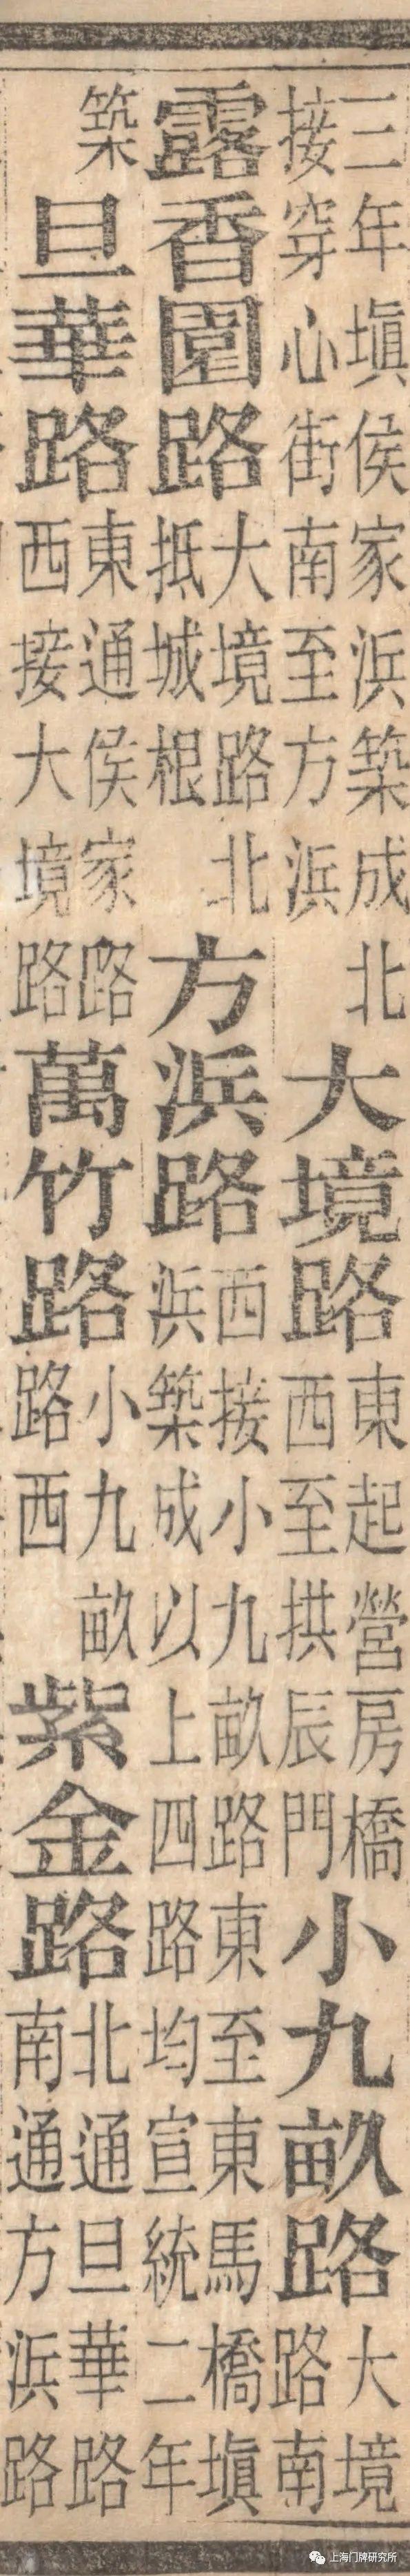 三年塡侯家浜築成北
接穿心街南至方浜
大境路
東起營房橋
西至拱辰門
小九畝路
大境
路南
露香園路
大境路北
抵城根
方浜路
西接小九畝路東至東馬橋塡
浜築成以上四路均宣統二年
築
旦華路
東通侯家路
西接大境路
萬竹路
小九畝
路西
紫金路
北通旦華路
南通方浜路
上海门牌研究所